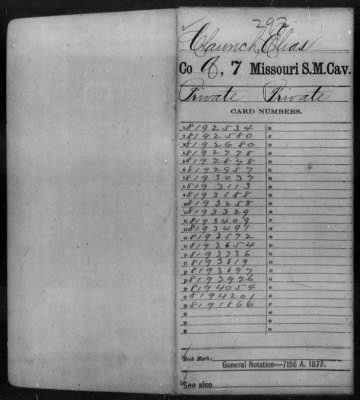 292
Claunch, Elias
Co. G, 7 Missouri S.M. Cav.
Private Private
CARD NUMBERS.
8192534
8192580
8192680
8192778
8192878
8192957
8193037
8193113
8193188
8193258
8193329
8193409
8193491
8193572
8193654
8193736
8193819
8193897
8193976
8194054
8194201
8191866
Book Mark:
General Notation—7156 A. 1877.
See also